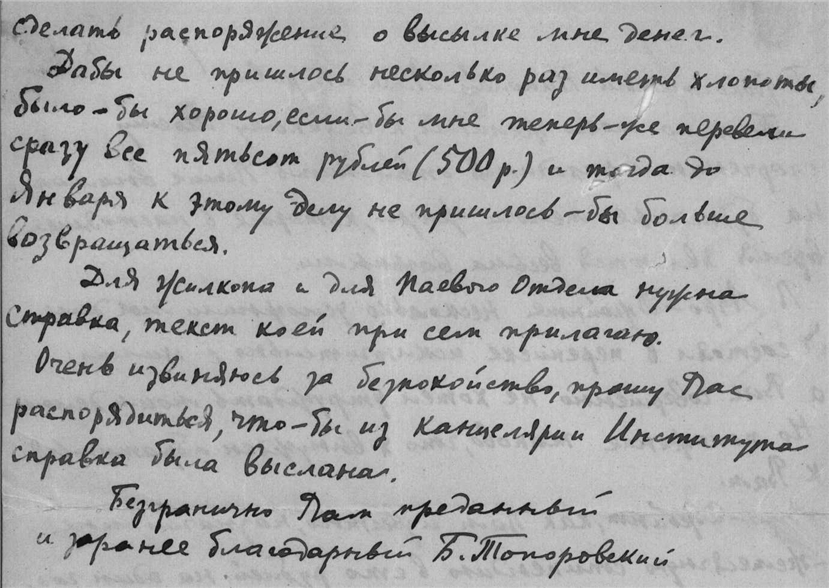 сделать распоряжение о высылке мне денег.
Дабы не пришлось несколько раз иметь хлопоты,
было-бы хорошо, если-бы мне теперь-же перевели
сразу все пятьсот рублей (500 р.) и тогда до
Января к этому делу не пришлось-бы больше
возвращаться.
Для Жилкопа и для Паевого Отдела нужна
справка, текст коей при сем прилагаю.
Очень извиняюсь за безпокойство, прошу Вас
распорядиться, что-бы из канцелярии Института
справка была выслана.
Безгранично Вам преданный
и заранее благодарный Б. Топоровский